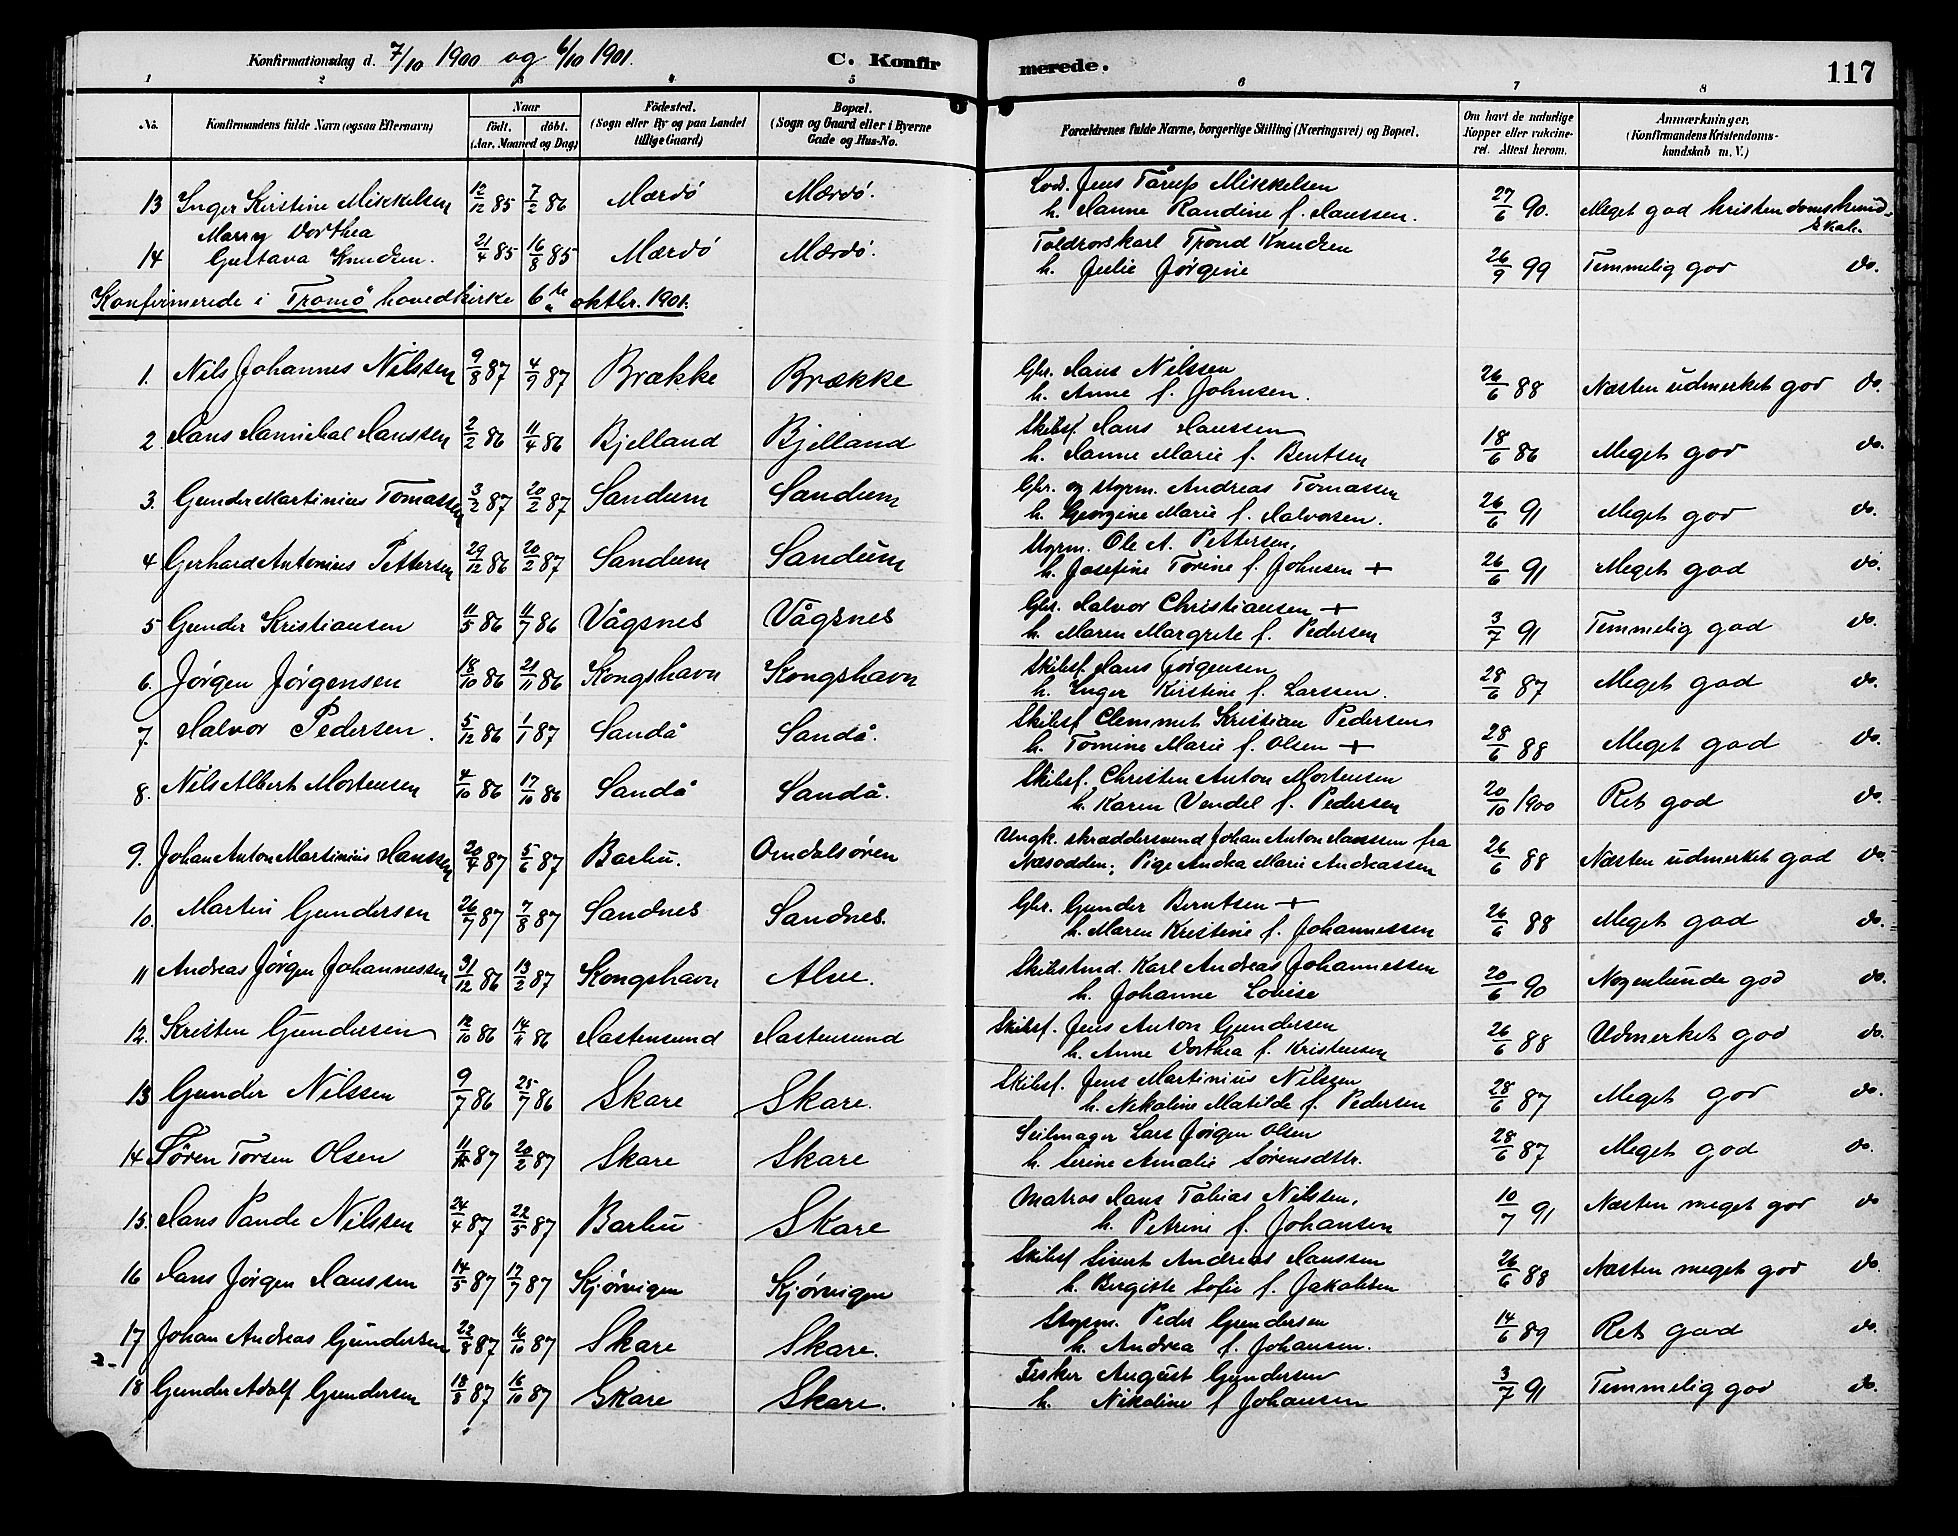 Konfirmationsdag d. 7/10 1900 og 6/10 1901. C. Konfirmerede. 117
1 2 3 4 5 6 7 8
No. Konfirmandens fulde Navn (ogsaa Efternavn) Naar født. døbt. (Aar, Maaned og Dag) Fødested. (Sogn eller By og paa Landet tillige Gaard) Bopæl. (Sogn og Gaard eller i Byerne Gade og Hus-No. Forældrenes fulde Navne, borgerlige Stilling (Næringsvei) og Bopæl. Om havt de naturlige Kopper eller vakcineret. Attest herom. Anmærkninger. (Konfirmandens Kristendomskundskab m. V.)
13 Inger Kirstine Mikkelsen 12/12 85 7/2 86 Mærdø Mærdø. Lods. Jens Tårup Mikkelsen
h. Hanne Randine f. Hanssen. 27/6 90. Meget god kristendomskundskab.
14 Marry Dorthea
Gustava Knudsen. 21/4 85 16/8 85 Mærdø Mærdø. Toldrorskarl Trond Knudsen
h. Julie Jørgine 26/9 99 Temmelig god do.
Konfirmerede i Tromø hovedkirke 6te oktbr. 1901.
1. Nils Johannes Nilssen 9/8 87 4/9 87 Brække Brække Gbr. Hans Nilssen
h. Anne f. Johnsen. 26/6 88 Næsten udmerket god do.
2. Hans Hannibal Hanssen 2/2 86 11/4 86 Bjelland Bjelland Skibsf. Hans Hanssen
h. Hanne Marie f. Bentsen 18/6 86 Meget god do.
3. Gunder Martinius Tomassen 3/2 87 20/2 87 Sandum Sandum Gbr. og styrm. Andreas Tomassen
h. Georgine Marie f. Halvorsen. 26/6 91 Meget god do.
4 Gerhard Antonius Pettersen 29/12 86 20/2 87 Sandum Sandum Styrm. Ole A. Pettersen,
h. Josefine Torine f. Johnsen + 26/6 91 Meget god do.
5 Gunder Kristiansen 11/5 86 11/7 86 Vågsnes Vågsnes Gbr. Halvor Christiansen +
h. Maren Margrete f. Pedersen 3/7 91 Temmelig god do.
6. Jørgen Jørgensen 18/10 86 21/11 86 Kongshavn Kongshavn Skibsf. Hans Jørgensen
h. Inger Kirstine f. Larssen. 28/6 87 Meget god do.
7. Halvor Pedersen. 5/12 86 1/1 87 Sandå Sandå. Skibsf. Clemmet Kristian Pedersen
h. Tomine Marie f. Olsen + 28/6 88 Meget god do.
8. Nils Albert Mortensen 4/10 86 17/10 86 Sandå Sandå. Skibsf. Christen Anton Mortensen
h. Karen Vendel f. Pedersen 20/10 1900 Ret god do.
9. Johan Anton Martinius Hanssen 20/4 87 5/6 87 Barbu. Omdalsøren Ungk. skræddersvend Johan Anton Hanssen fra
Næsodden; Pige Andrea Marie Andreassen 26/6 88 Næsten udmerket god do.
10. Martin Gundersen 26/7 87 7/8 87 Sandnes Sandnes. Gbr. Gunder Berntsen +
h. Maren Kristine f. Johannessen 26/6 88 Meget god do.
11 Andreas Jørgen Johannessen 31/12 86 13/2 87 Kongshavn Alve. Skibstmd. Karl Andreas Johannessen
h. Johanne Lovise 20/6 90 Nogenlunde god do.
12. Kristen Gundersen 12/10 86 14/11 86 Hastensund Hastensund Skibsf. Jens Anton Gundersen
h. Anne Dorthea f. Kristensen 26/6 88 Udmerket god do.
13 Gunder Nilssen 9/7 86 25/7 86 Skare Skare. Skibsf. Jens Martinius Nilssen
h. Nikoline Matilde f. Pedersen 28/6 87 Meget god do.
14 Søren Torsen Olsen 87 20/2 87 Skare Skare Seilmager Lars Jørgen Olsen
h. Serine Amalie Sørensdttr. 28/6 87 Meget god do.
15. Hans Pande Nilssen 24/4 87 22/5 87 Barbu Skare Matros Hans Tobias Nilssen,
h. Petrine f. Johansen 10/7 91 Næsten meget god do
16 Hans Jørgen Hanssen 14/5 87 17/7 87 Kjørvigen Kjørvigen Skibsf Sivert Andreas Hanssen
h. Bergitte Sofie f. Jakobsen 26/6 88 Næsten meget god do
17 Johan Andreas Gundersen 22/8 87 16/10 87 Skare Skare. Styrm. Peder Gundersen
h. Andrea f. Johansen. 14/6 89 Ret god do.
18 Gunder Adolf Gundersen 18/8 87 16/10 87 Skare Skare. Fisker August Gundersen
h. Nikoline f Johansen 3/7 91 Temmelig god do.